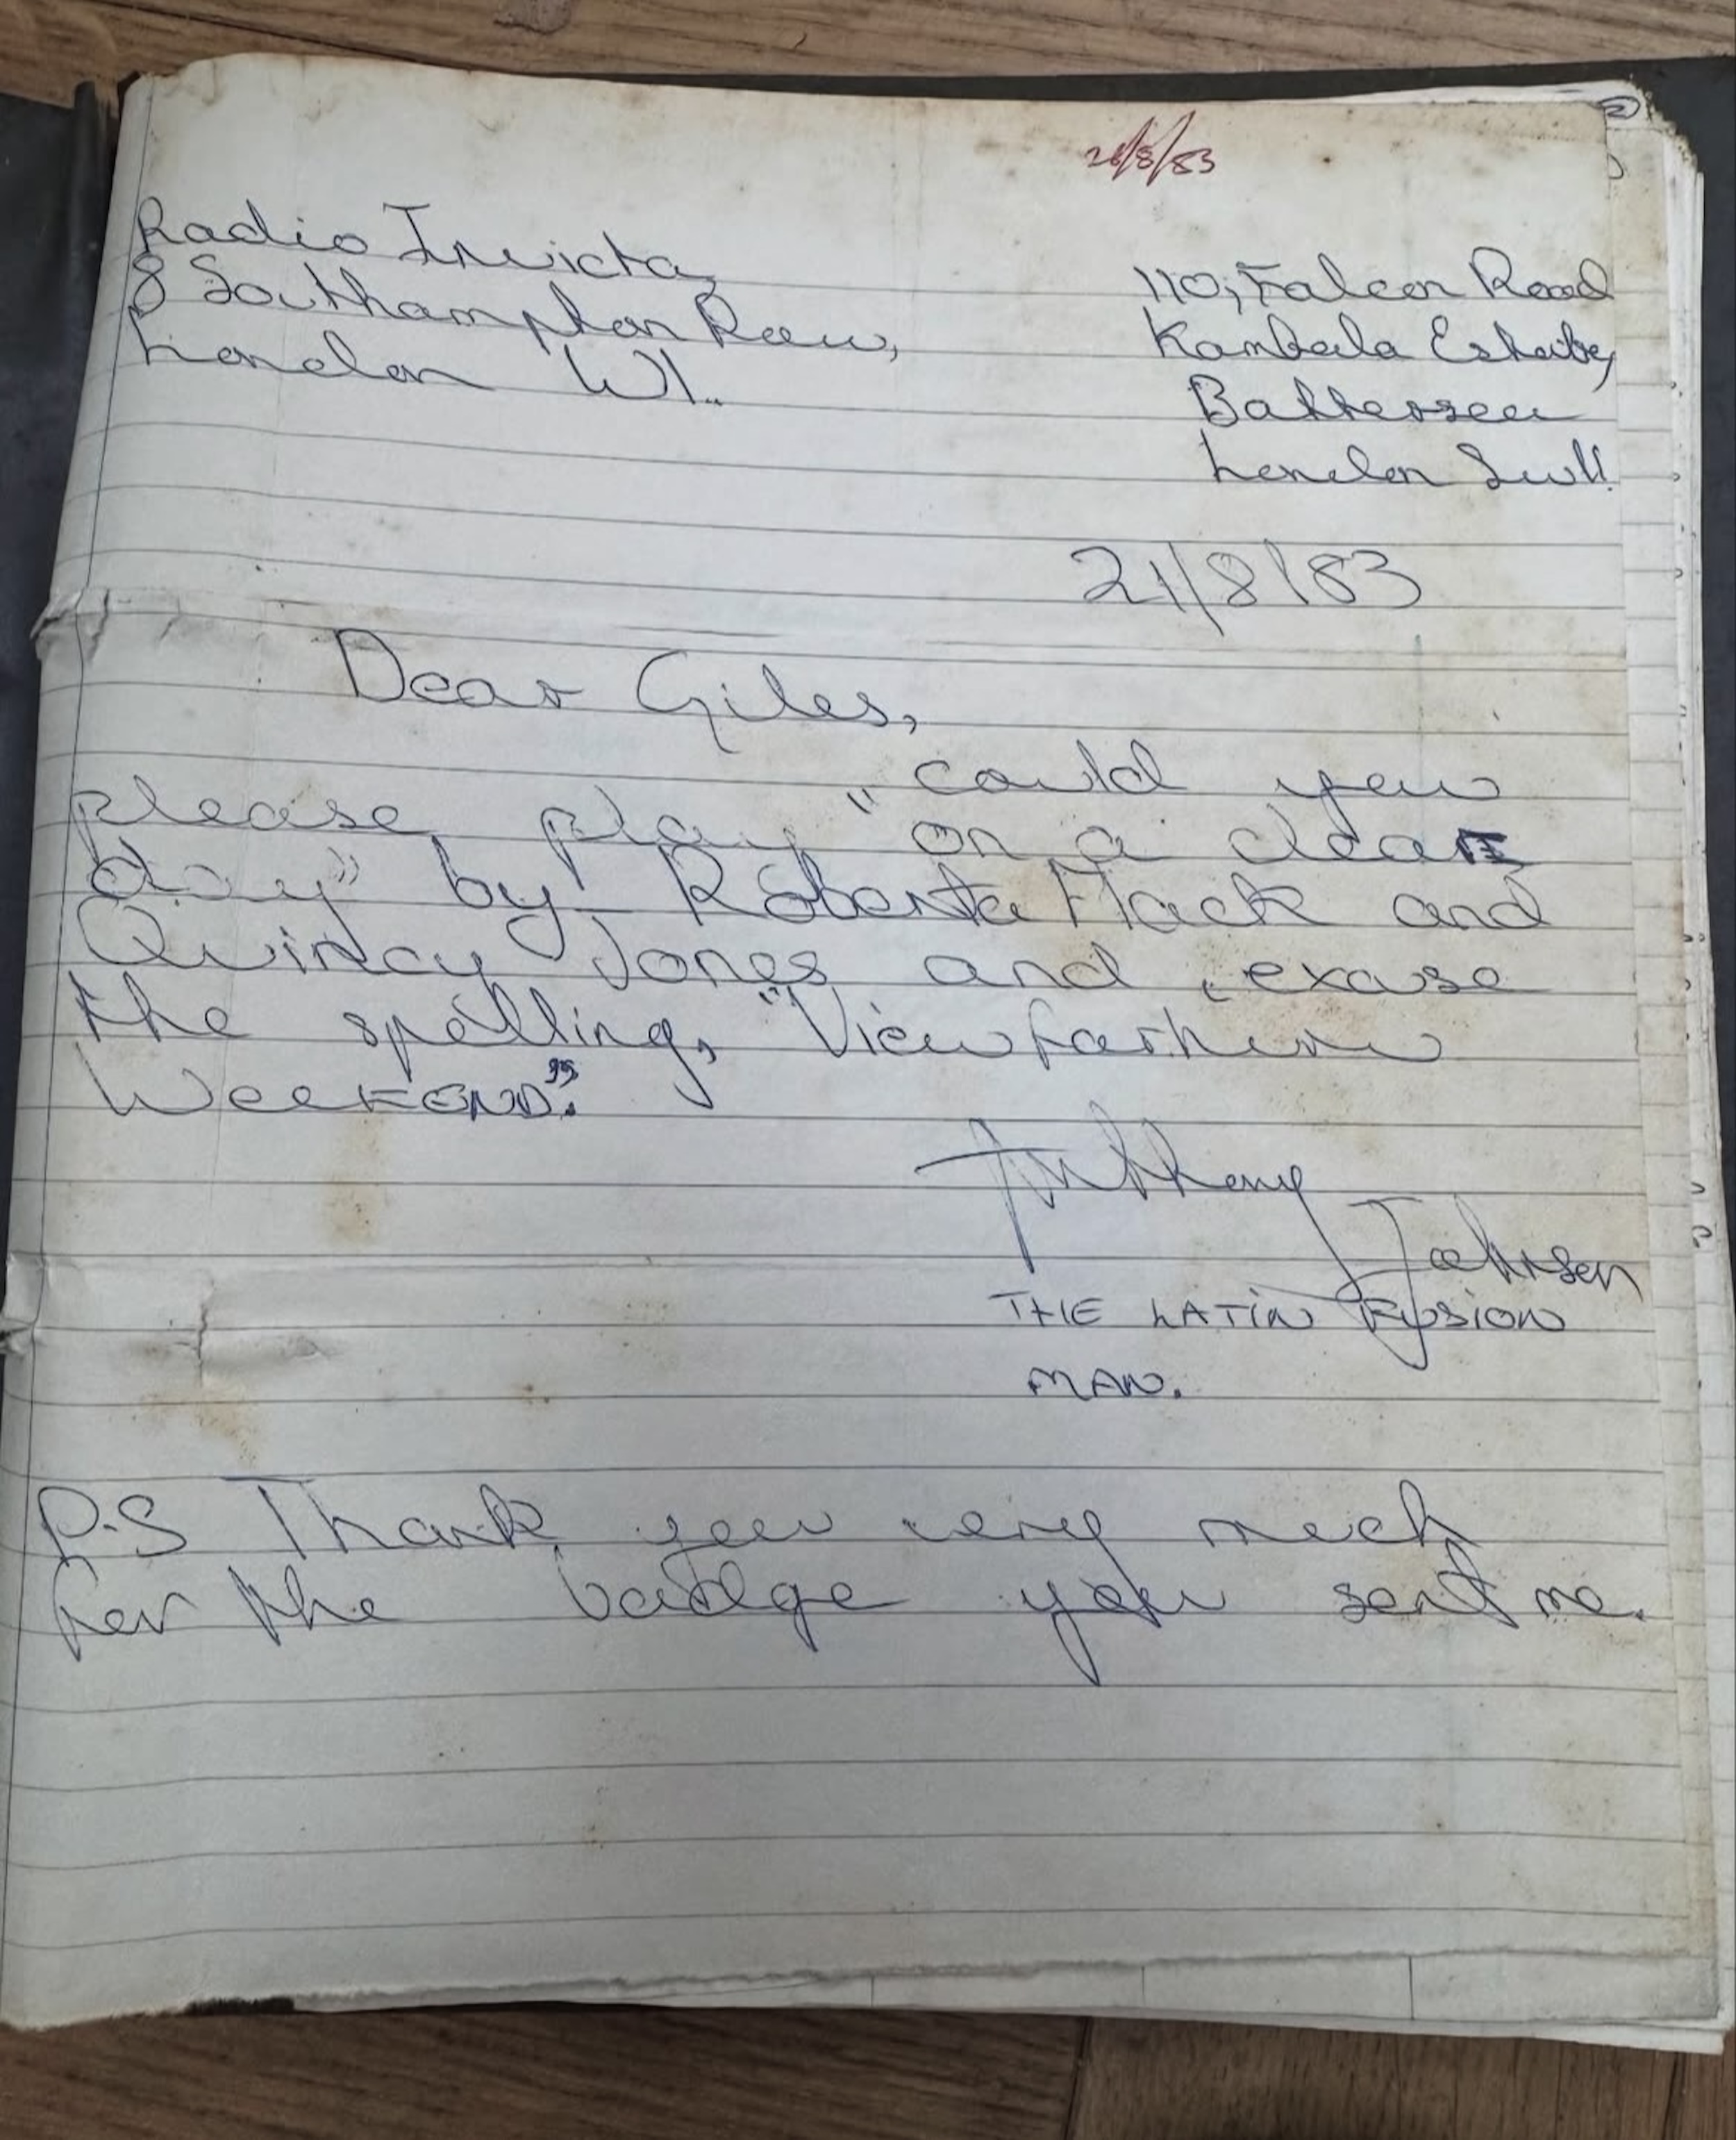 26/8/83
Radio Invicta,
8 Southampton Row,
London W1.
110, Falcon Road
Kambala Estate,
Battersea
London SW11
21/8/83
Dear Giles,
could you
please play "on a clear
day" by Roberta Flack and
Quincy Jones and excuse
the spelling, "View farhire
WEEKEND".
Anthony
Johnson
THE LATIN FUSION
MAN.
P.S Thank you very much
for the badge you sent me.